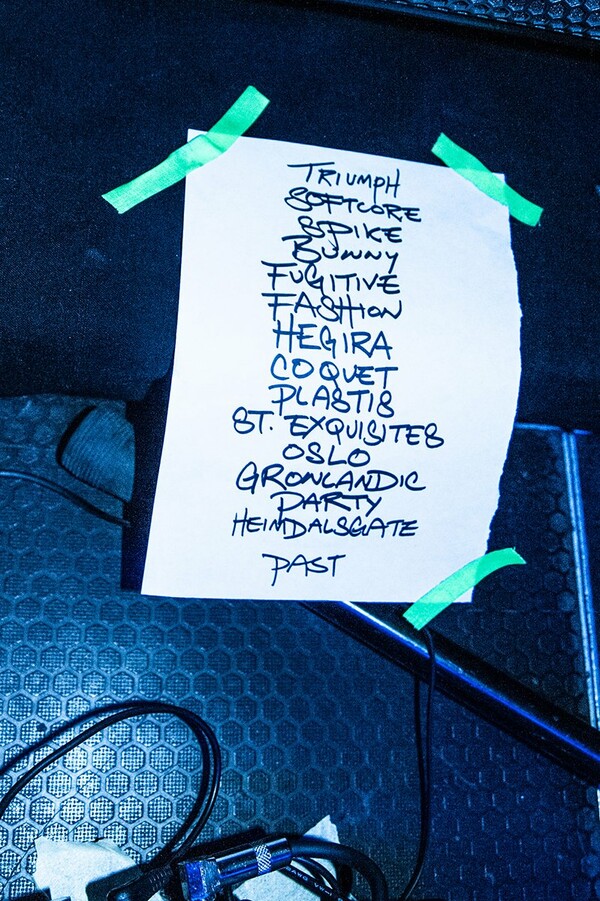 TRIUMPH
SOFTCORE
SPIKE
BUNNY
FUGITIVE
FASHION
HEGIRA
COQUET
PLASTIS
ST. EXQUISITES
OSLO
GRONLANDIC
PARTY
HEIMDALSGATE
PAST